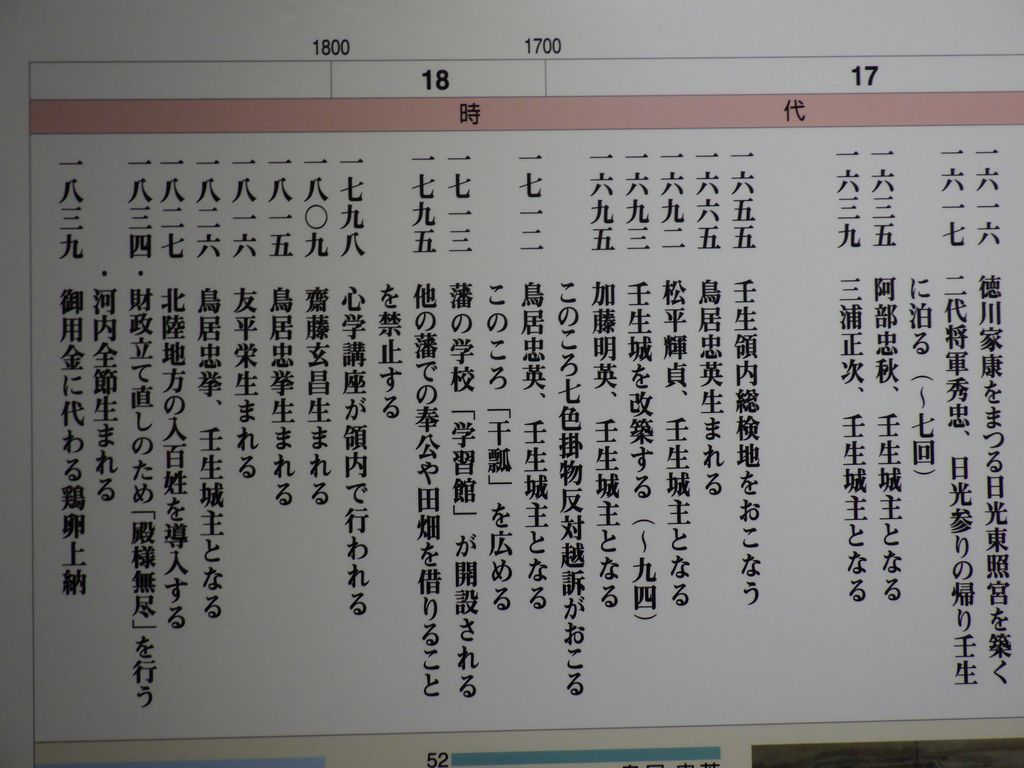 1800
1700
18
17
時
代
一六一六
徳川家康をまつる日光東照宮を築く
一六一七
二代将軍秀忠、日光参りの帰り壬生
に泊る（～七回）
一六三五
阿部忠秋、壬生城主となる
一六三九
三浦正次、壬生城主となる
一六五五
壬生領内総検地をおこなう
一六六五
鳥居忠英生まれる
一六九二
松平輝貞、壬生城主となる
一六九三
壬生城を改築する（～九四）
一六九五
加藤明英、壬生城主となる
このころ七色掛物反対越訴がおこる
一七一二
鳥居忠英、壬生城主となる
このころ「干瓢」を広める
一七一三
藩の学校「学習館」が開設される
一七九五
他の藩での奉公や田畑を借りること
を禁止する
一七九八
心学講座が領内で行われる
一八〇九
齋藤玄昌生まれる
一八一五
鳥居忠挙生まれる
一八一六
友平栄生まれる
一八二六
鳥居忠挙、壬生城主となる
一八二七
北陸地方の入百姓を導入する
一八三四
・財政立て直しのため「殿様無尽」を行う
・河内全節生まれる
一八三九
御用金に代わる鶏卵上納
52